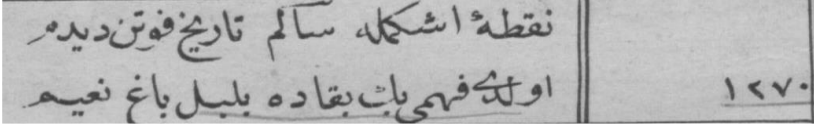 نقطهٔ اشکمله سالم تاریخ فوتن دیدم
اولدی فهمی باب بقاده بلبل باغ نعیم ١٢٧٠